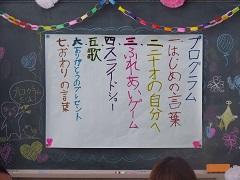 プログラム
一はじめの言葉
二二十才の自分へ
三ふれあいゲーム
四スライドショー
五歌
六ありがとうのプレゼント
七おわりの言葉